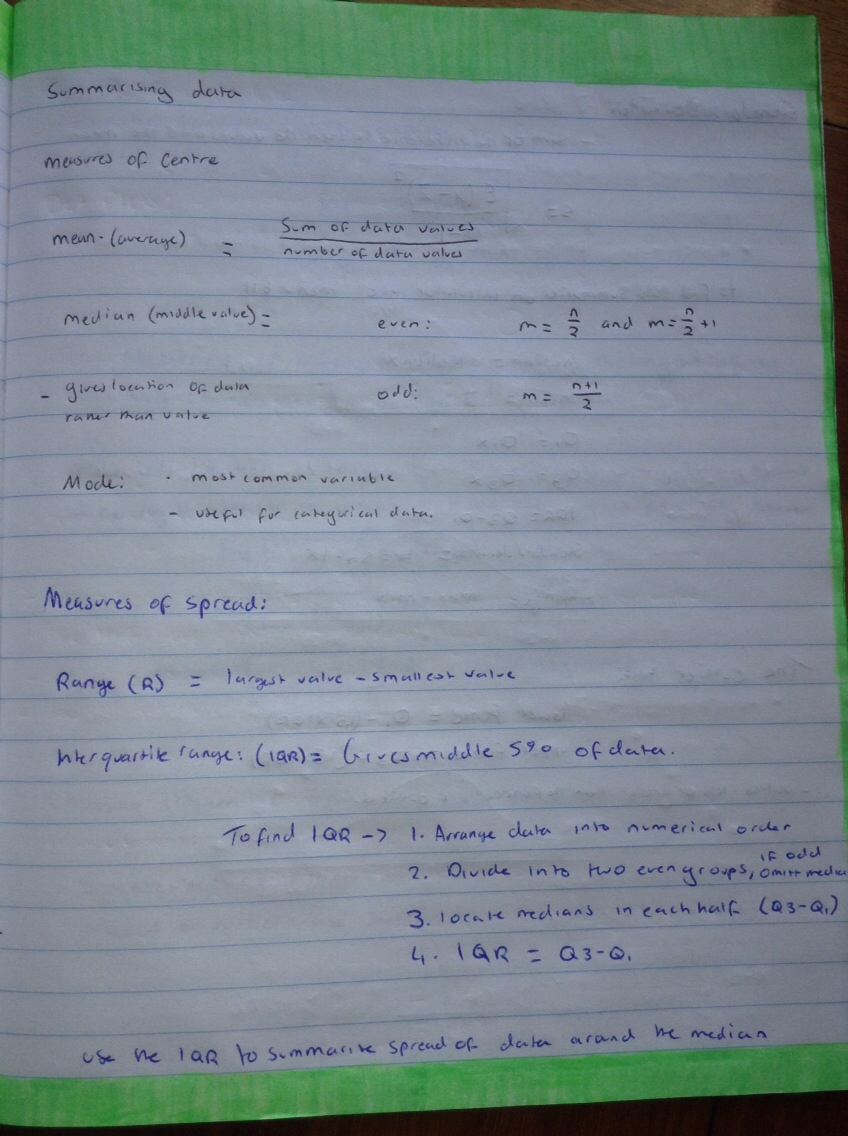 Summarising data
measures of centre
mean - (average) = Sum of data values / number of data values
median (middle value) = even: m = n/2 and m = n/2 + 1
- gives location of data odd: m = n+1/2
rather than value
Mode: - most common variable
- useful for categorical data.
Measures of spread:
Range (R) = largest value - smallest value
Interquartile range: (IQR) = Gives middle 5% of data.
To find IQR -> 1. Arrange data into numerical order
2. Divide into two even groups, if odd omitt median
3. locate medians in each half (Q3-Q1)
4. IQR = Q3-Q1
use the IQR to summarise spread of data around the median